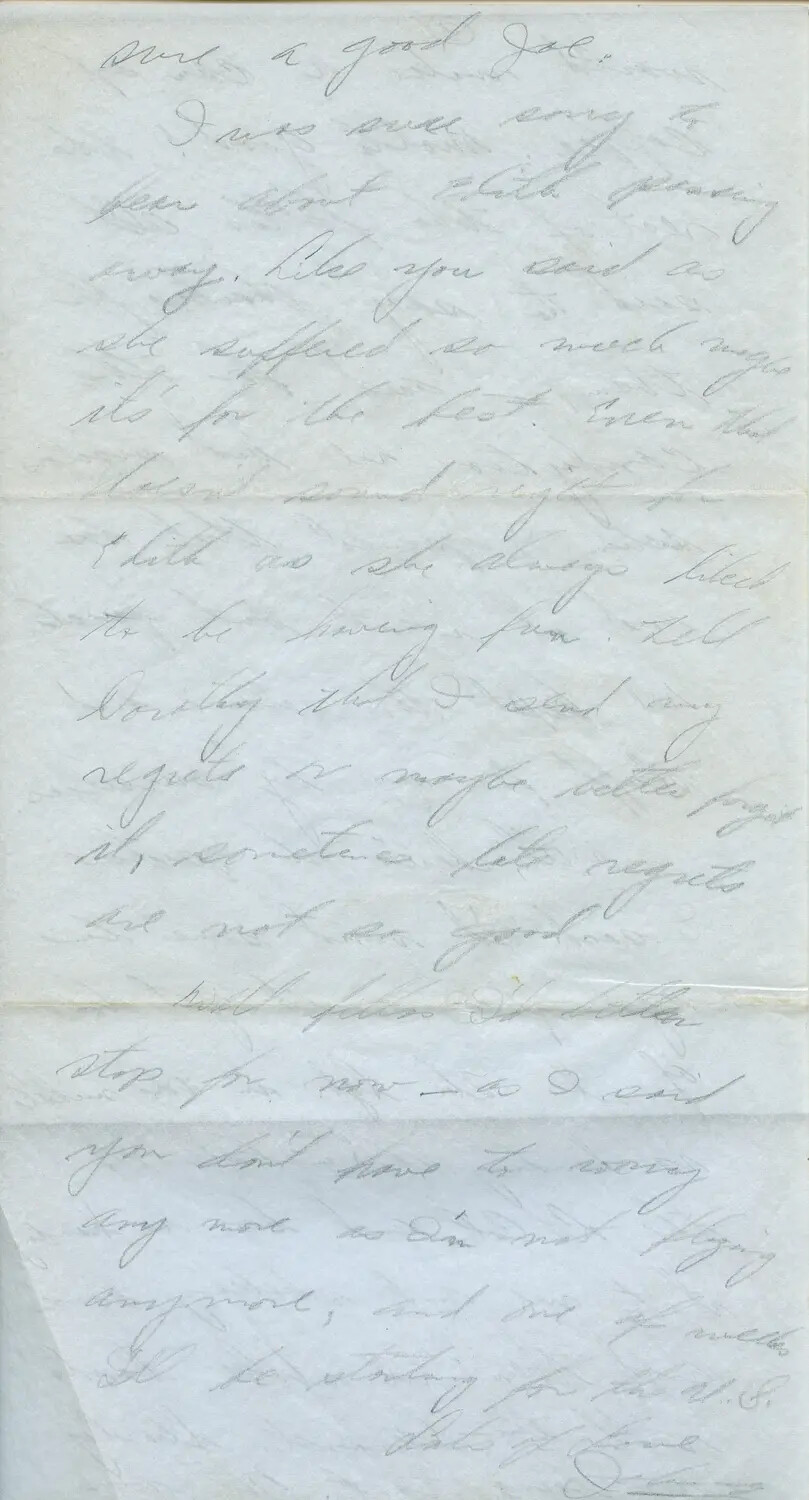 sure a good Joe.
I was sure sorry to
hear about Edith passing
away. Like you said as
she suffered so much maybe
it's for the best. Even that
doesn't sound right for
Edith as she always liked
to be having fun. Tell
Dorothy that I send my
regrets or maybe better forget
it, sometimes late regrets
are not so good
Well folks I'd better
stop for now – as I said
you don't have to worry
any more as I'm not flying
anymore, and one of weeks
I'll be starting for the U.S.
Lots of Love
Johnny